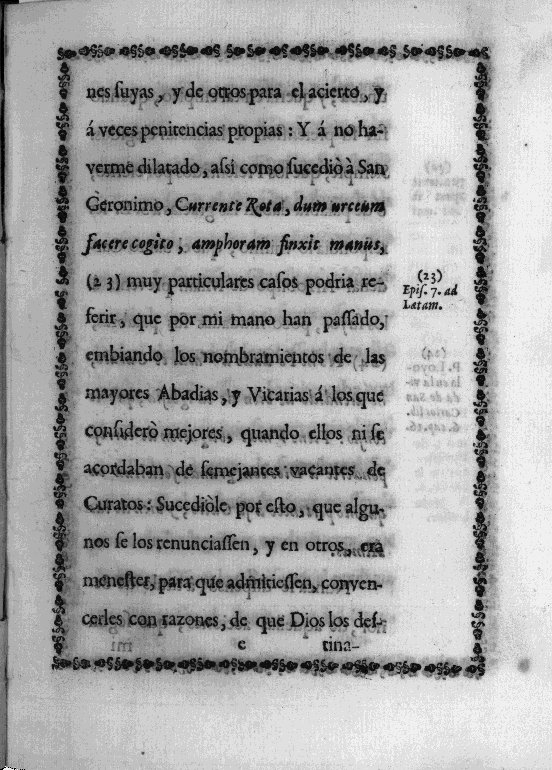 nes ſuyas, y de otros para el acierto, y
á veces penitencias propias: Y á no ha-
verme dilatado, aſsi como ſucediò à San
Geronimo, Currente Rota, dum urceum
facere cogito, amphoram finxit manus,
(23) muy particulares caſos podria re-
ferir, que por mi mano han paſſado,
embiando los nombramientos de las
mayores Abadias, y Vicarias á los que
conſiderò mejores, quando ellos ni ſe
acordaban de ſemejantes vacantes de
Curatos: Sucediòle por eſto, que algu-
nos ſe los renunciaſſen, y en otros, era
meneſter, para que admitieſſen, conven-
cerles con razones, de que Dios los deſ-
e tina-
(23)
Epiſ. 7. ad
Latam.